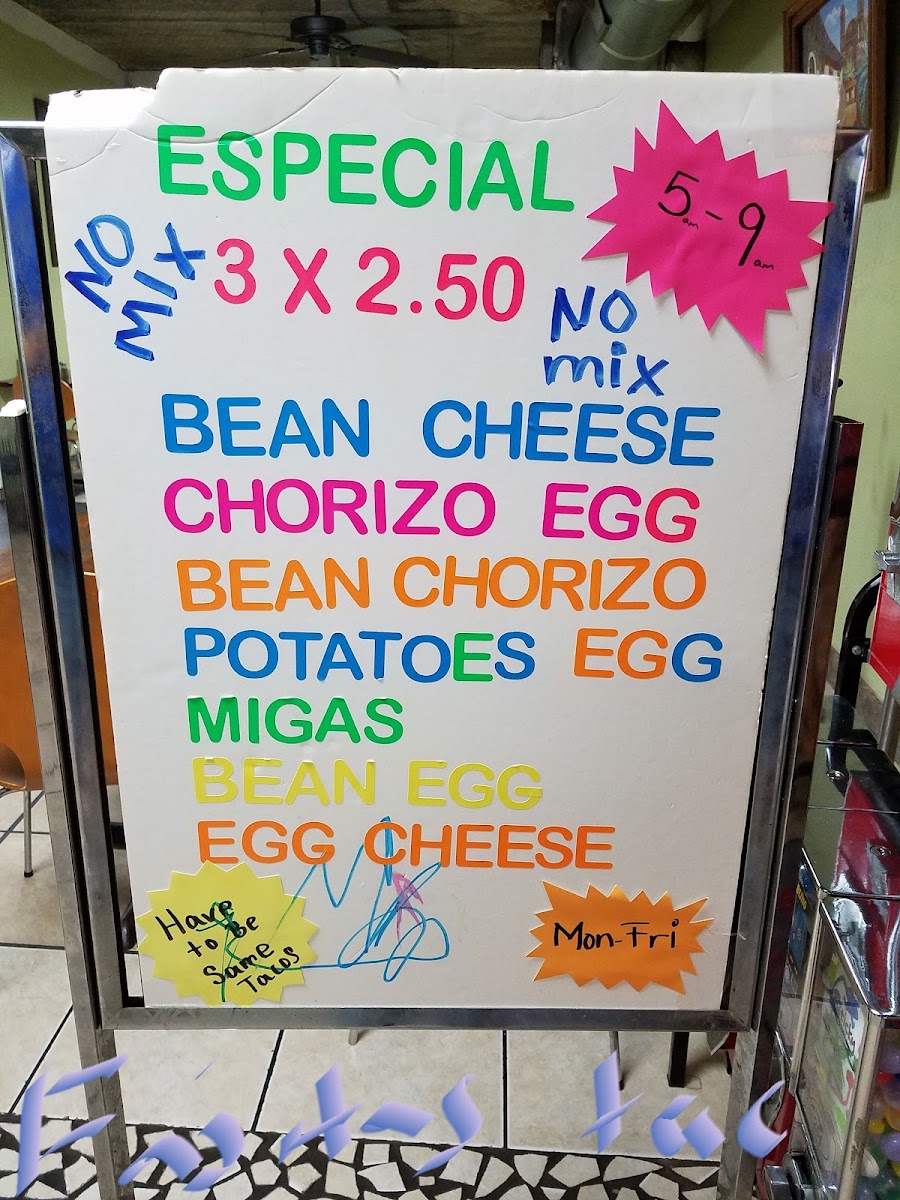 ESPECIAL
5am - 9am
NO
MIX
3 X 2.50
NO
mix
BEAN CHEESE
CHORIZO EGG
BEAN CHORIZO
POTATOES EGG
MIGAS
BEAN EGG
EGG CHEESE
Have
to Be
Same
Tacos
Mon-Fri